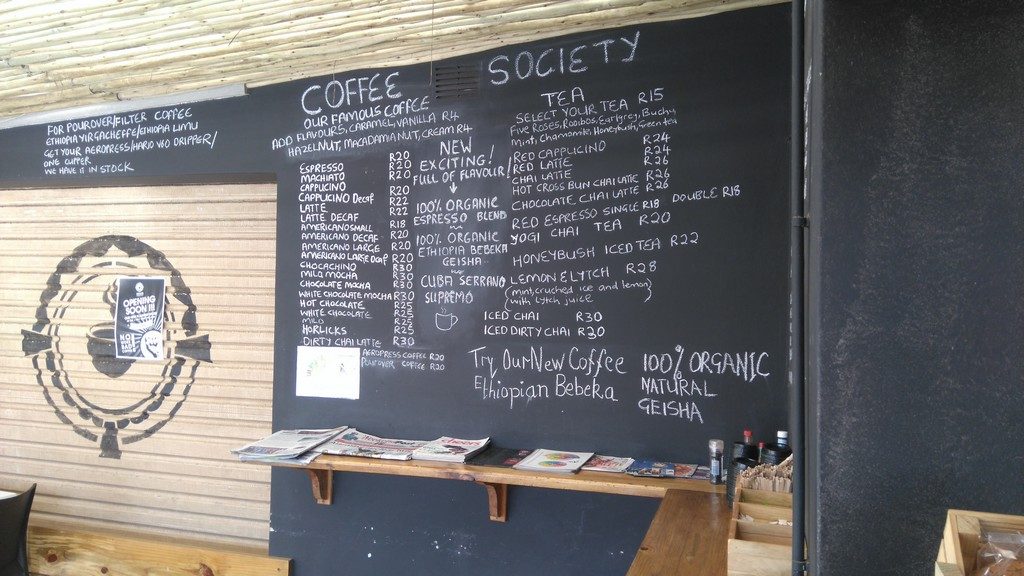 COFFEE SOCIETY
FOR POUROVER/FILTER COFFEE
ETHIOPIA YIRGACHEFFE/ETHIOPIA LIMU
GET YOUR AEROPRESS/HARIO V60 DRIPPER/
ONE CUPPER
WE HAVE IT IN STOCK
OPENING
SOON!!!
OUR FAMOUS COFFEE
ADD FLAVOURS, CARAMEL, VANILLA R4
HAZELNUT, MACADAMIA NUT, CREAM R4
ESPRESSO R20
MACHIATO R20
CAPPUCINO R20
CAPPUCINO Decaf R22
LATTE R22
LATTE DECAF
AMERICANO SMALL R18
AMERICANO DECAF R20
AMERICANO LARGE R20
AMERICANO LARGE Decaf
CHOCACHINO R30
MILO MOCHA R30
CHOCOLATE MOCHA R30
WHITE CHOCOLATE MOCHA R30
HOT CHOCOLATE R25
WHITE CHOCOLATE R25
MILO R25
HORLICKS R25
DIRTY CHAI LATTE R30
AEROPRESS COFFEE R20
POUROVER COFFEE R20
NEW
EXCITING!
FULL OF FLAVOUR
100% ORGANIC
ESPRESSO BLEND
100% ORGANIC
ETHIOPIA BEBEKA
GEISHA
CUBA SERRANO
SUPREMO
TEA
SELECT YOUR TEA R15
Five Roses, Rooibos, Earlgrey, Buchu
Mint, Chamomile, Honeybush, Green tea
RED CAPPUCINO R24
RED LATTE R24
CHAI LATTE R26
HOT CROSS BUN CHAI LATTE R26
CHOCOLATE CHAI LATTE R26
RED ESPRESSO SINGLE R18 DOUBLE R18
YOGI CHAI TEA R20
HONEYBUSH ICED TEA R22
LEMON & LYTCH R28
(mint, cruched ice and lemon)
with lytch juice
ICED CHAI R30
ICED DIRTY CHAI R30
Try Our New Coffee
Ethiopian Bebeka
100% ORGANIC
NATURAL
GEISHA